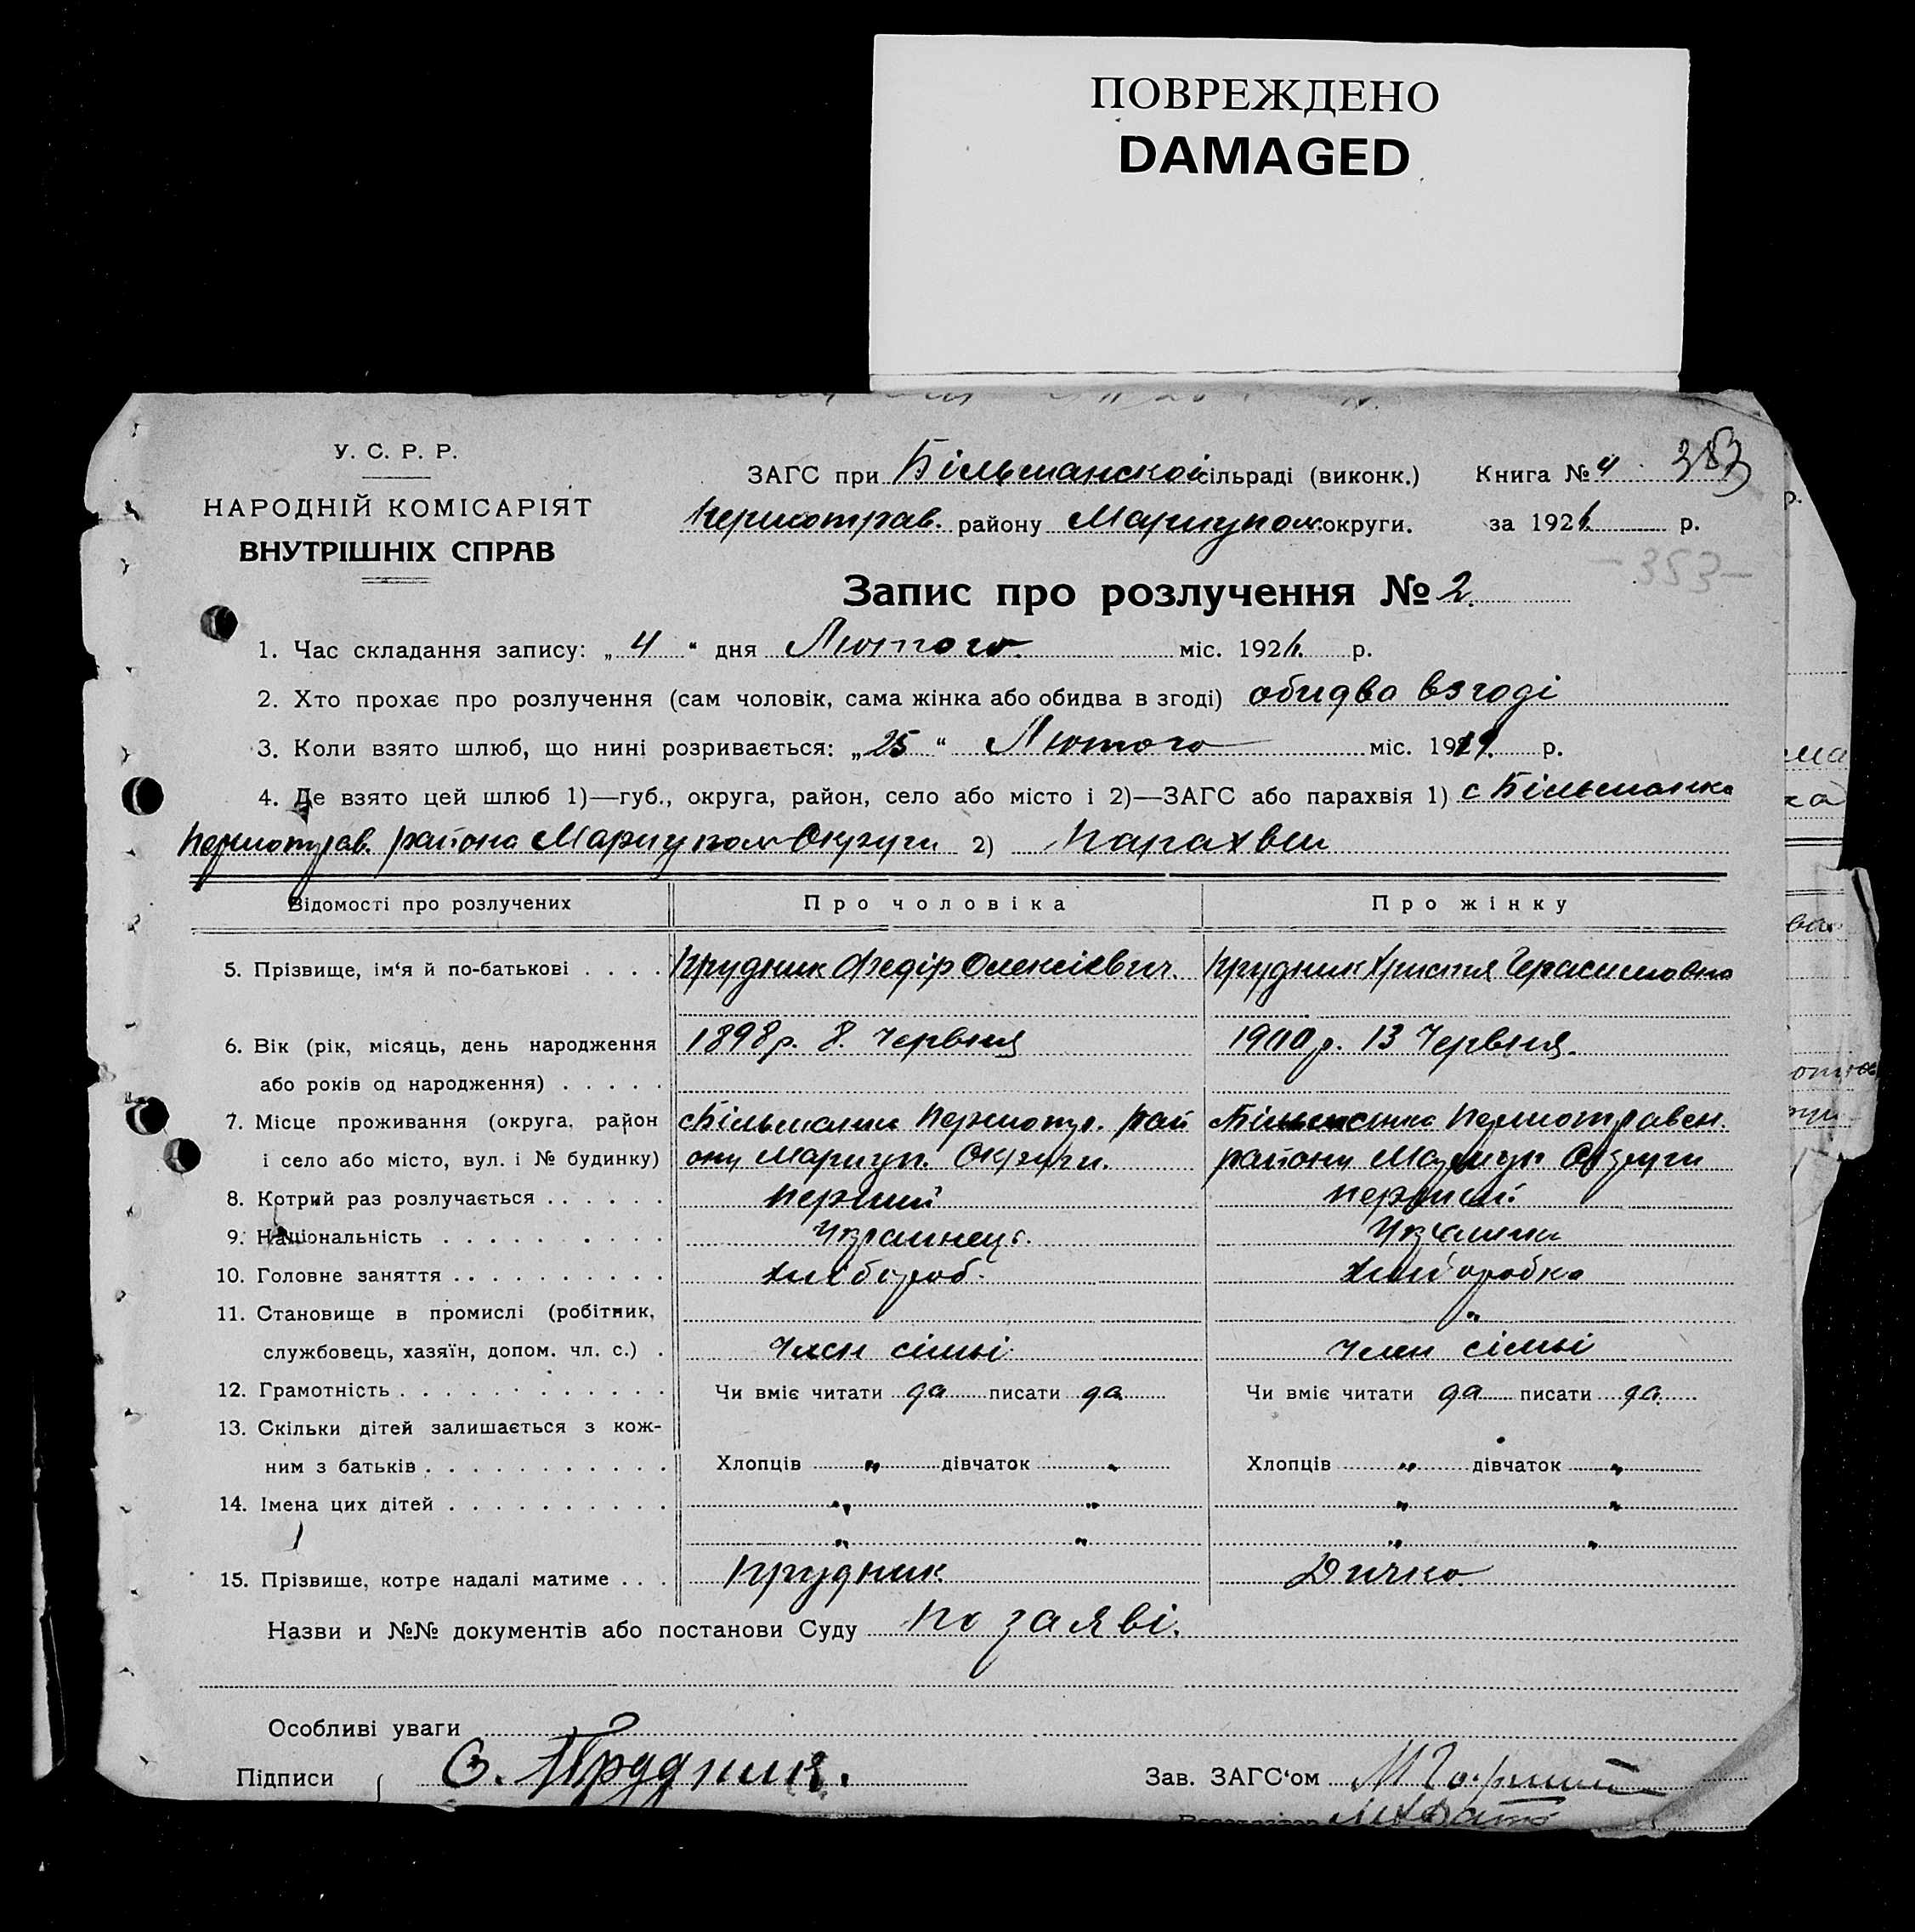 ПОВРЕЖДЕНО
DAMAGED
У. С. Р. Р.
НАРОДНІЙ КОМІСАРІЯТ
ВНУТРІШНІХ СПРАВ
ЗАГС при Більманской сільраді (виконк.) Книга № 4 353
Першотрав. району Маріупол. округи. за 1926 р.
-353-
Запис про розлучення № 2.
1. Час складання запису: „ 4 “ дня Лютого міс. 1926. р.
2. Хто прохає про розлучення (сам чоловік, сама жінка або обидва в згоді) обидва взгоді
3. Коли взято шлюб, що нині розривається: „ 25 “ Лютого міс. 1919. р.
4. Де взято цей шлюб 1)—губ., округа, район, село або місто і 2)—ЗАГС або парахвія 1) с Більманка
Першотрав. района Мариупол Округи 2) Парахвии
Відомості про розлучених Про чоловіка Про жінку
5. Прізвище, ім‘я й по-батькові . . . . Прудник Федір Олексієвич Прудник Христя Герасимовна
6. Вік (рік, місяць, день народження 1898 р. 8. Червня 1900 р. 13 Червня.
або років од народження) . . . . .
7. Місце проживання (округа, район с Більманка Першотр. рай с Більманка Першотравен.
і село або місто, вул. і № будинку) ону Мариуп. Округи. району Мариуп Округи
8. Котрий раз розлучається . . . . . . перший перший
9. Національність . . . . . . . . . . Украинець. Украинка
10. Головне заняття . . . . . . . . . . хлібороб. хліборобка
11. Становище в промислі (робітник, „
службовець, хазяїн, допом. чл. с.) . Член сімьі Член сімьі
12. Грамотність . . . . . . . . . . . . Чи вміє читати да писати да Чи вміє читати да писати да.
13. Скільки дітей залишається з кож-
ним з батьків . . . . . . . . . . . Хлопців „ дівчаток „ Хлопців „ дівчаток „
14. Імена цих дітей . . . . . . . . . . „ „ „ „
„ „ „ „
15. Прізвище, котре надалі матиме . . . Прудник Дичко.
Назви и №№ документів або постанови Суду по заяві.
Особливі уваги
Підписи Прудник. Зав. ЗАГС‘ом